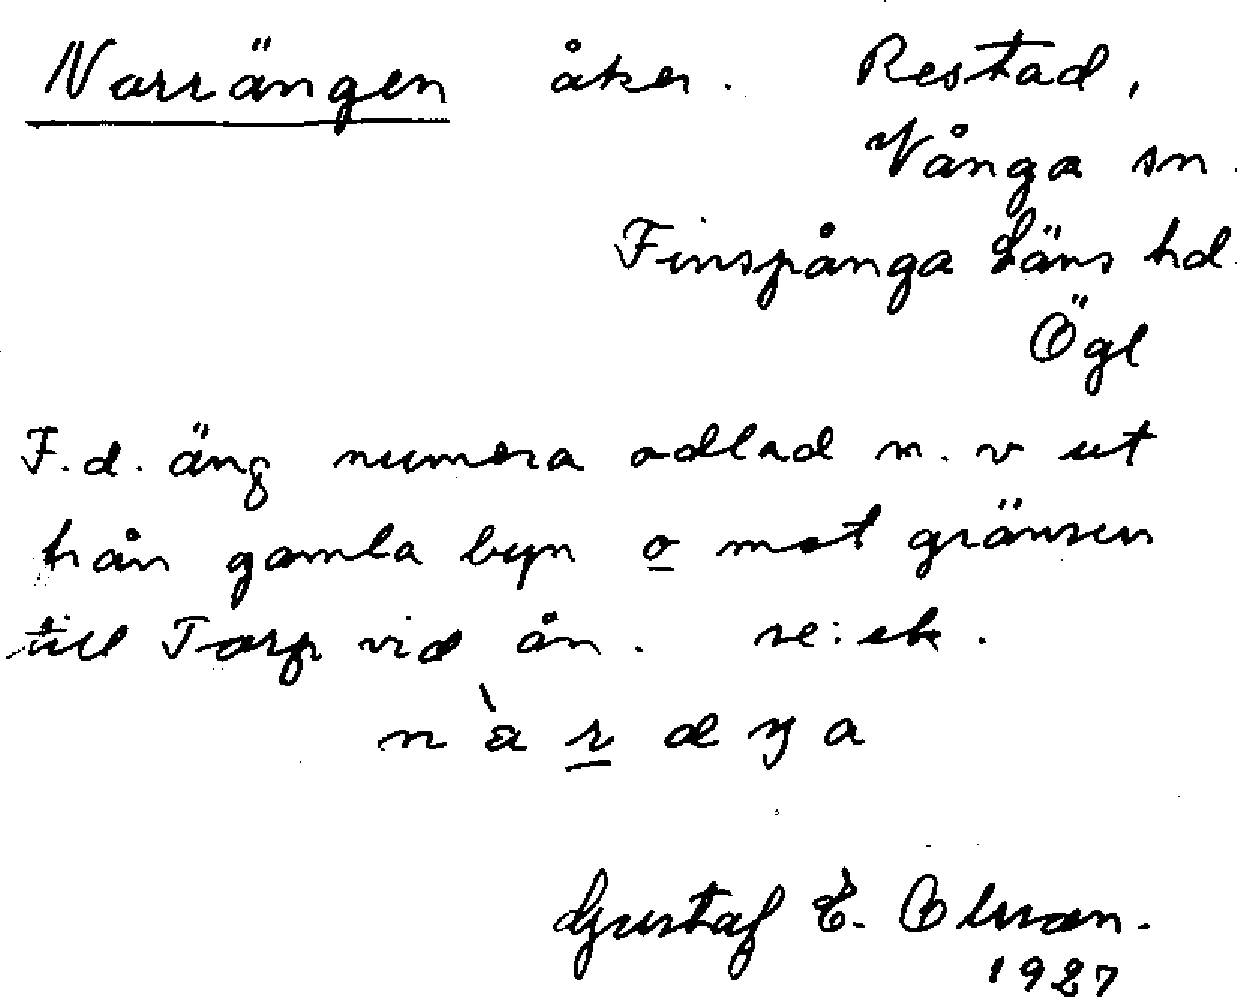 Norrängen åker. Restad,
Vånga sn.
Finspånga Läns hd.
Ögl
F.d. äng numera odlad n. v ut
från gamla byn o mot gränsen
till Torp vid ån. se: ek.
Gustaf E. Olsson.
1927